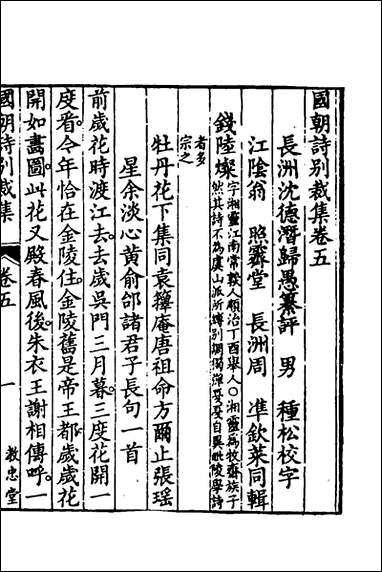 國朝詩別裁集卷五
長洲沈德潛歸愚纂評 男 種松校字
江陰翁 照霽堂 長洲周 準欽萊同輯
錢陸燦字湘靈江南常熟人順治丁酉舉人〇湘靈為牧齋族子
然其詩不為虞山派所縛別調獨彈戛戛自異毗陵學詩
者多
宗之
牡丹花下集同袁籜庵唐祖命方爾止張瑶
星余淡心黄俞邰諸君子長句一首
前歲花時渡江去去歲吳門三月暮三度花開一
度看今年恰在金陵住金陵舊是帝王都歲歲花
開如畫圖此花又殿春風後朱衣王謝相傳呼一
國朝詩別裁集 卷五 一 教忠堂